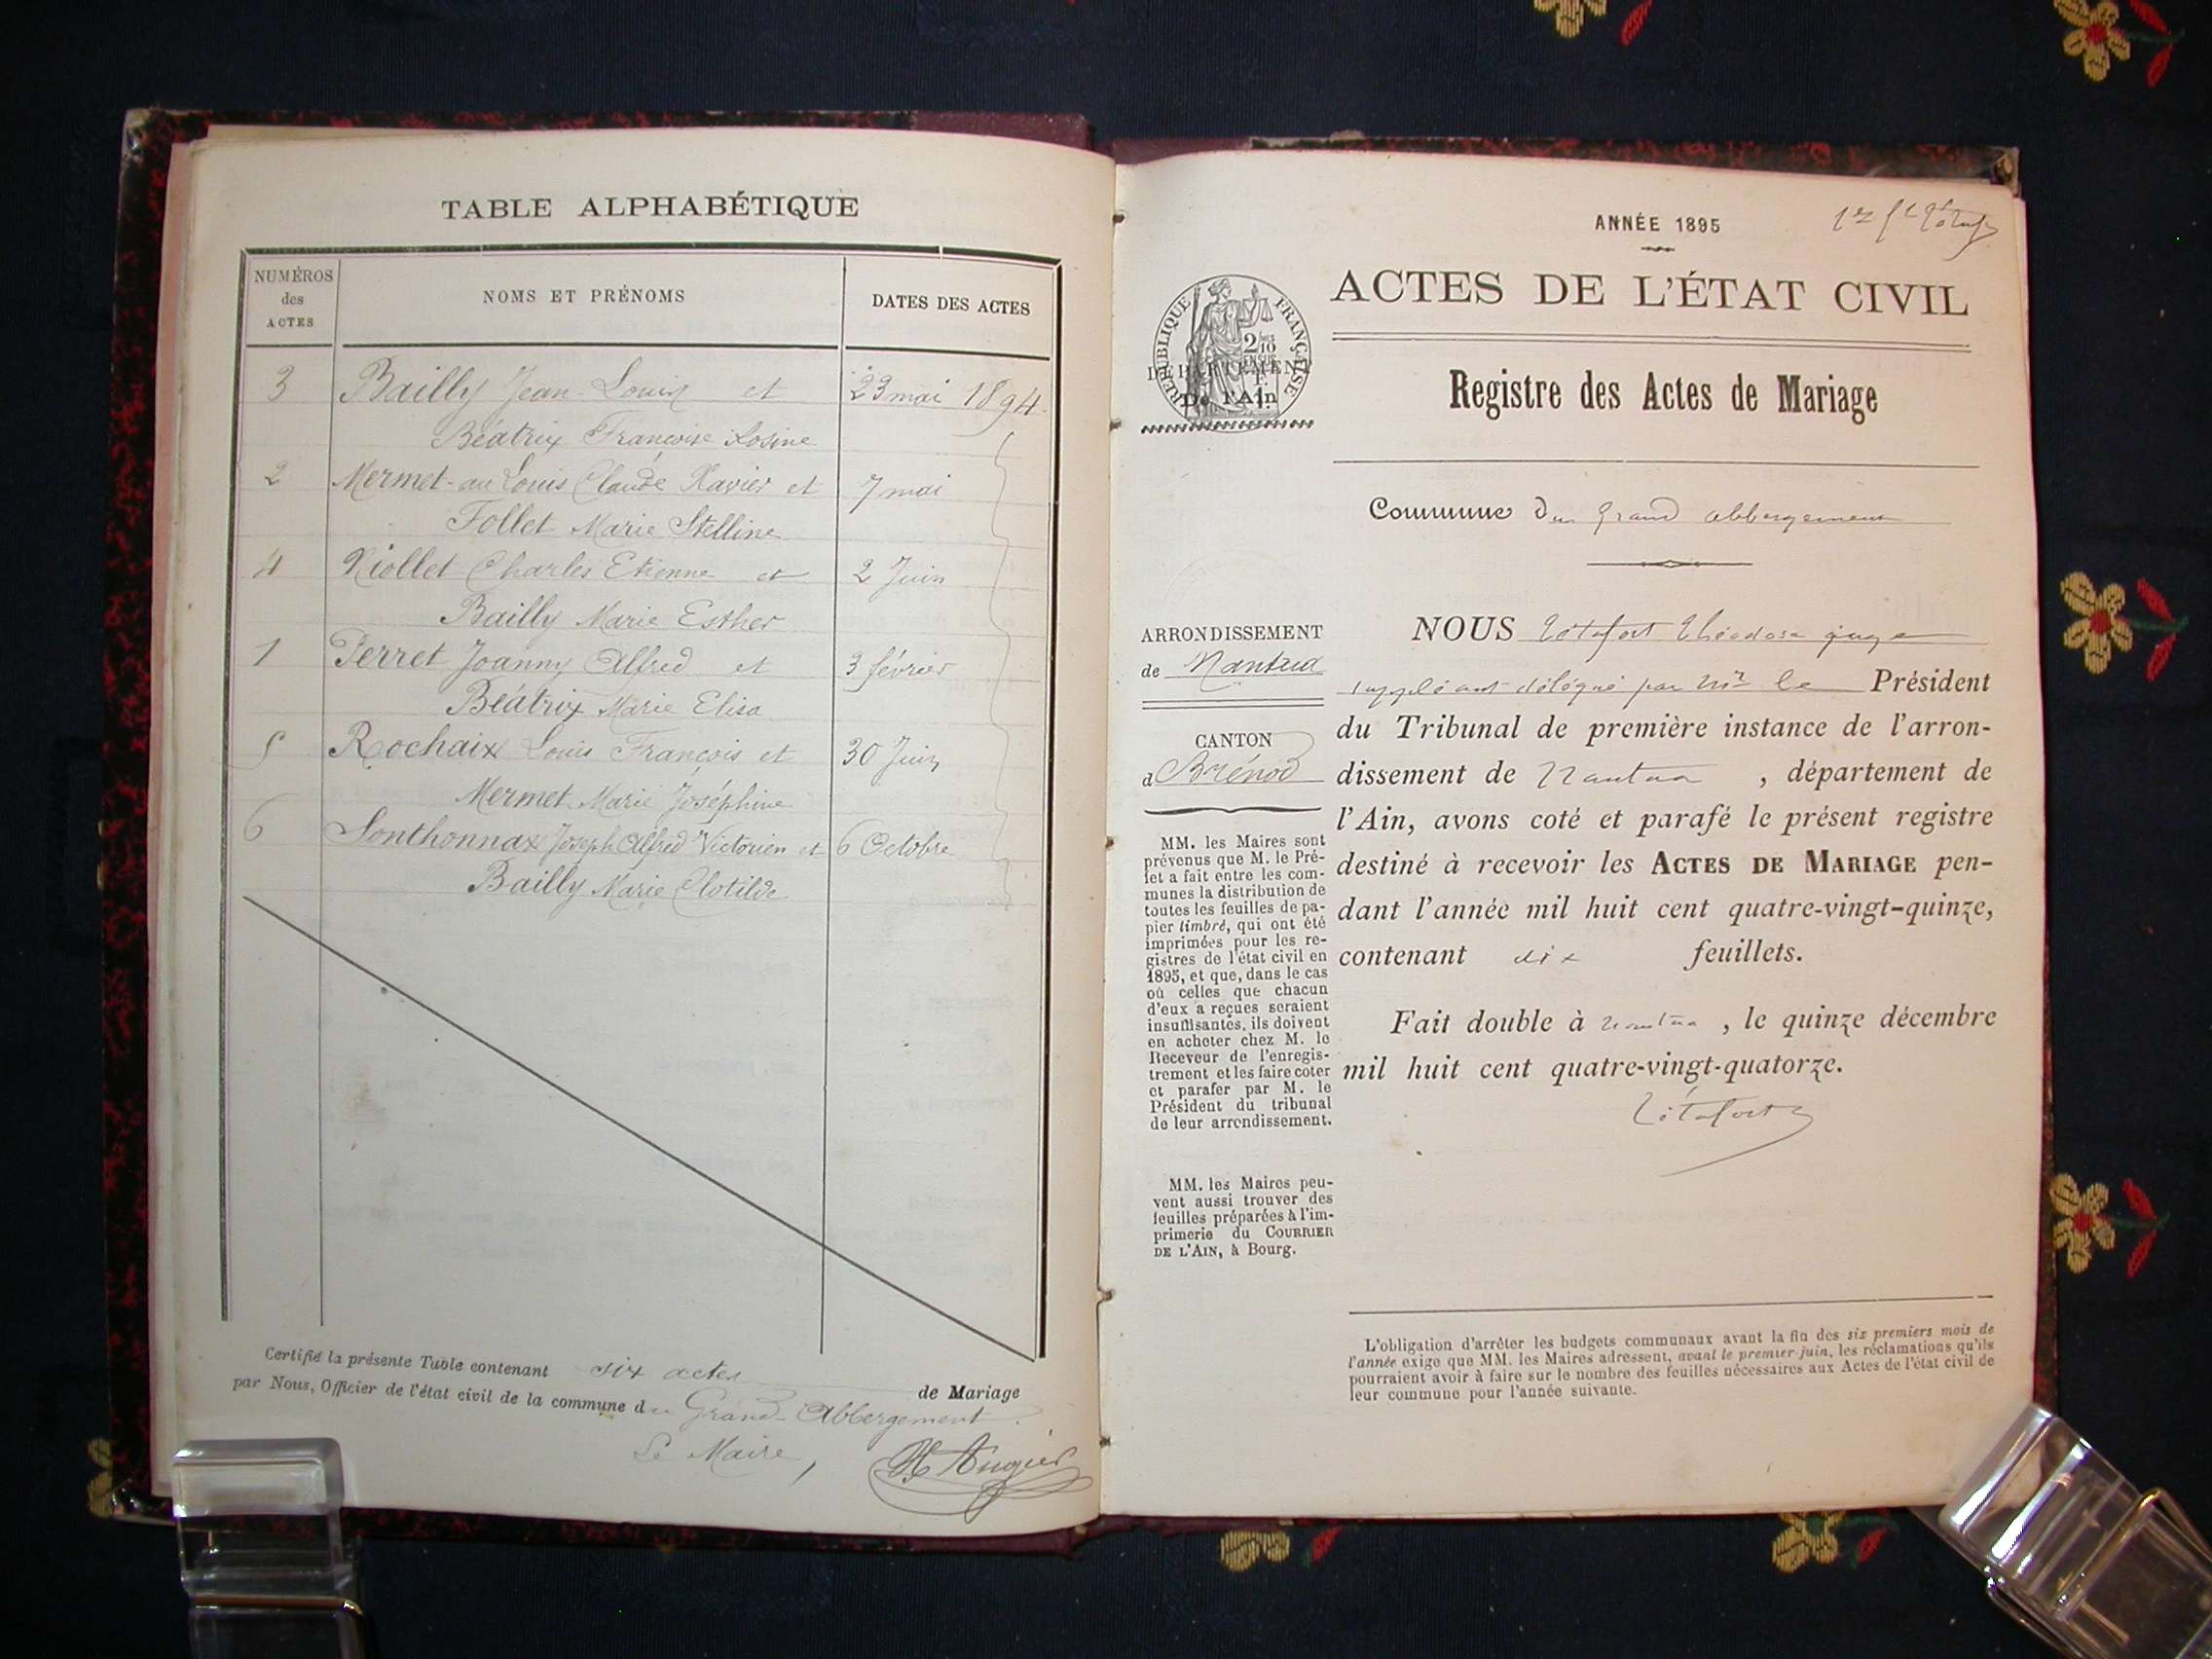 TABLE ALPHABÉTIQUE
NUMÉROS
des
ACTES
NOMS ET PRÉNOMS
DATES DES ACTES
3 Bailly Jean Louis et 23 mai 1894.
Béatrix Françoise Rosine
2 Mermet-au Louis Claude Xavier et 7 mai
Follet Marie Stelline
4 Niollet Charles Etienne et 2 Juin
Bailly Marie Esther
1 Perret Joanny Alfred et 3 février
Béatrix Marie Elisa
5 Rochaix Louis François et 30 Juin
Mermet Marie Joséphine
6 Sonthonnax Joseph Alfred Victorien et 6 Octobre
Bailly Marie Clotilde
Certifié la présente Table contenant six actes de Mariage
par Nous, Officier de l'état civil de la commune du Grand-Abbergement.
Le Maire,
Augier
ANNÉE 1895
ACTES DE L'ÉTAT CIVIL
RÉPUBLIQUE FRANÇAISE
2/10
EN SUS
DÉPARTEMENT
De l'Ain
Registre des Actes de Mariage
Commune du grand abbergement
ARRONDISSEMENT
de Nantua
CANTON
d Brénod
MM. les Maires sont
prévenus que M. le Pré-
fet a fait entre les com-
munes la distribution de
toutes les feuilles de pa-
pier timbré, qui ont été
imprimées pour les re-
gistres de l'état civil en
1895, et que, dans le cas
où celles que chacun
d'eux a reçues seraient
insuffisantes, ils doivent
en acheter chez M. le
Receveur de l'enregis-
trement et les faire coter
et parafer par M. le
Président du tribunal
de leur arrondissement.
MM. les Maires peu-
vent aussi trouver des
feuilles préparées à l'im-
primerie du COURRIER
DE L'AIN, à Bourg.
NOUS Tétafort Théodose juge
suppléant délégué par Mr le Président
du Tribunal de première instance de l'arron-
dissement de Nantua , département de
l'Ain, avons coté et parafé le présent registre
destiné à recevoir les ACTES DE MARIAGE pen-
dant l'année mil huit cent quatre-vingt-quinze,
contenant dix feuillets.
Fait double à nantua , le quinze décembre
mil huit cent quatre-vingt-quatorze.
Tétafort
L'obligation d'arrêter les budgets communaux avant la fin des six premiers mois de
l'année exige que MM. les Maires adressent, avant le premier juin, les réclamations qu'ils
pourraient avoir à faire sur le nombre des feuilles nécessaires aux Actes de l'état civil de
leur commune pour l'année suivante.